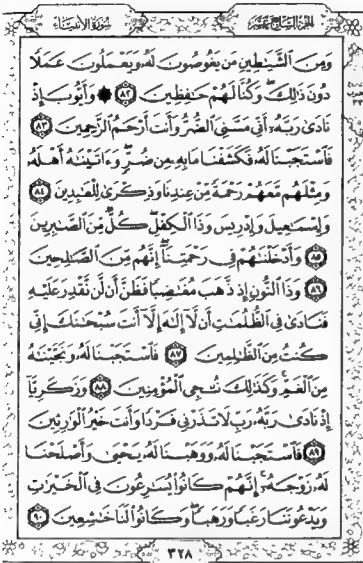 الجزء السابع عشر سورة الأنبياء
وَمِنَ ٱلشَّيَٰطِينِ مَن يَغُوصُونَ لَهُۥ وَيَعْمَلُونَ عَمَلًا
دُونَ ذَٰلِكَ ۖ وَكُنَّا لَهُمْ حَٰفِظِينَ ٨٢ ۞ وَأَيُّوبَ إِذْ
نَادَىٰ رَبَّهُۥٓ أَنِّى مَسَّنِىَ ٱلضُّرُّ وَأَنتَ أَرْحَمُ ٱلرَّٰحِمِينَ ٨٣
فَٱسْتَجَبْنَا لَهُۥ فَكَشَفْنَا مَا بِهِۦ مِن ضُرٍّ ۖ وَءَاتَيْنَٰهُ أَهْلَهُۥ
وَمِثْلَهُم مَّعَهُمْ رَحْمَةً مِّنْ عِندِنَا وَذِكْرَىٰ لِلْعَٰبِدِينَ ٨٤
وَإِسْمَٰعِيلَ وَإِدْرِيسَ وَذَا ٱلْكِفْلِ ۖ كُلٌّ مِّنَ ٱلصَّٰبِرِينَ
٨٥ وَأَدْخَلْنَٰهُمْ فِى رَحْمَتِنَآ ۖ إِنَّهُم مِّنَ ٱلصَّٰلِحِينَ
٨٦ وَذَا ٱلنُّونِ إِذ ذَّهَبَ مُغَٰضِبًا فَظَنَّ أَن لَّن نَّقْدِرَ عَلَيْهِ
فَنَادَىٰ فِى ٱلظُّلُمَٰتِ أَن لَّآ إِلَٰهَ إِلَّآ أَنتَ سُبْحَٰنَكَ إِنِّى
كُنتُ مِنَ ٱلظَّٰلِمِينَ ٨٧ فَٱسْتَجَبْنَا لَهُۥ وَنَجَّيْنَٰهُ
مِنَ ٱلْغَمِّ ۚ وَكَذَٰلِكَ نُۨجِى ٱلْمُؤْمِنِينَ ٨٨ وَزَكَرِيَّآ
إِذْ نَادَىٰ رَبَّهُۥ رَبِّ لَا تَذَرْنِى فَرْدًا وَأَنتَ خَيْرُ ٱلْوَٰرِثِينَ
٨٩ فَٱسْتَجَبْنَا لَهُۥ وَوَهَبْنَا لَهُۥ يَحْيَىٰ وَأَصْلَحْنَا
لَهُۥ زَوْجَهُۥٓ ۚ إِنَّهُمْ كَانُوا۟ يُسَٰرِعُونَ فِى ٱلْخَيْرَٰتِ
وَيَدْعُونَنَا رَغَبًا وَرَهَبًا ۖ وَكَانُوا۟ لَنَا خَٰشِعِينَ ٩٠
٣٢٨